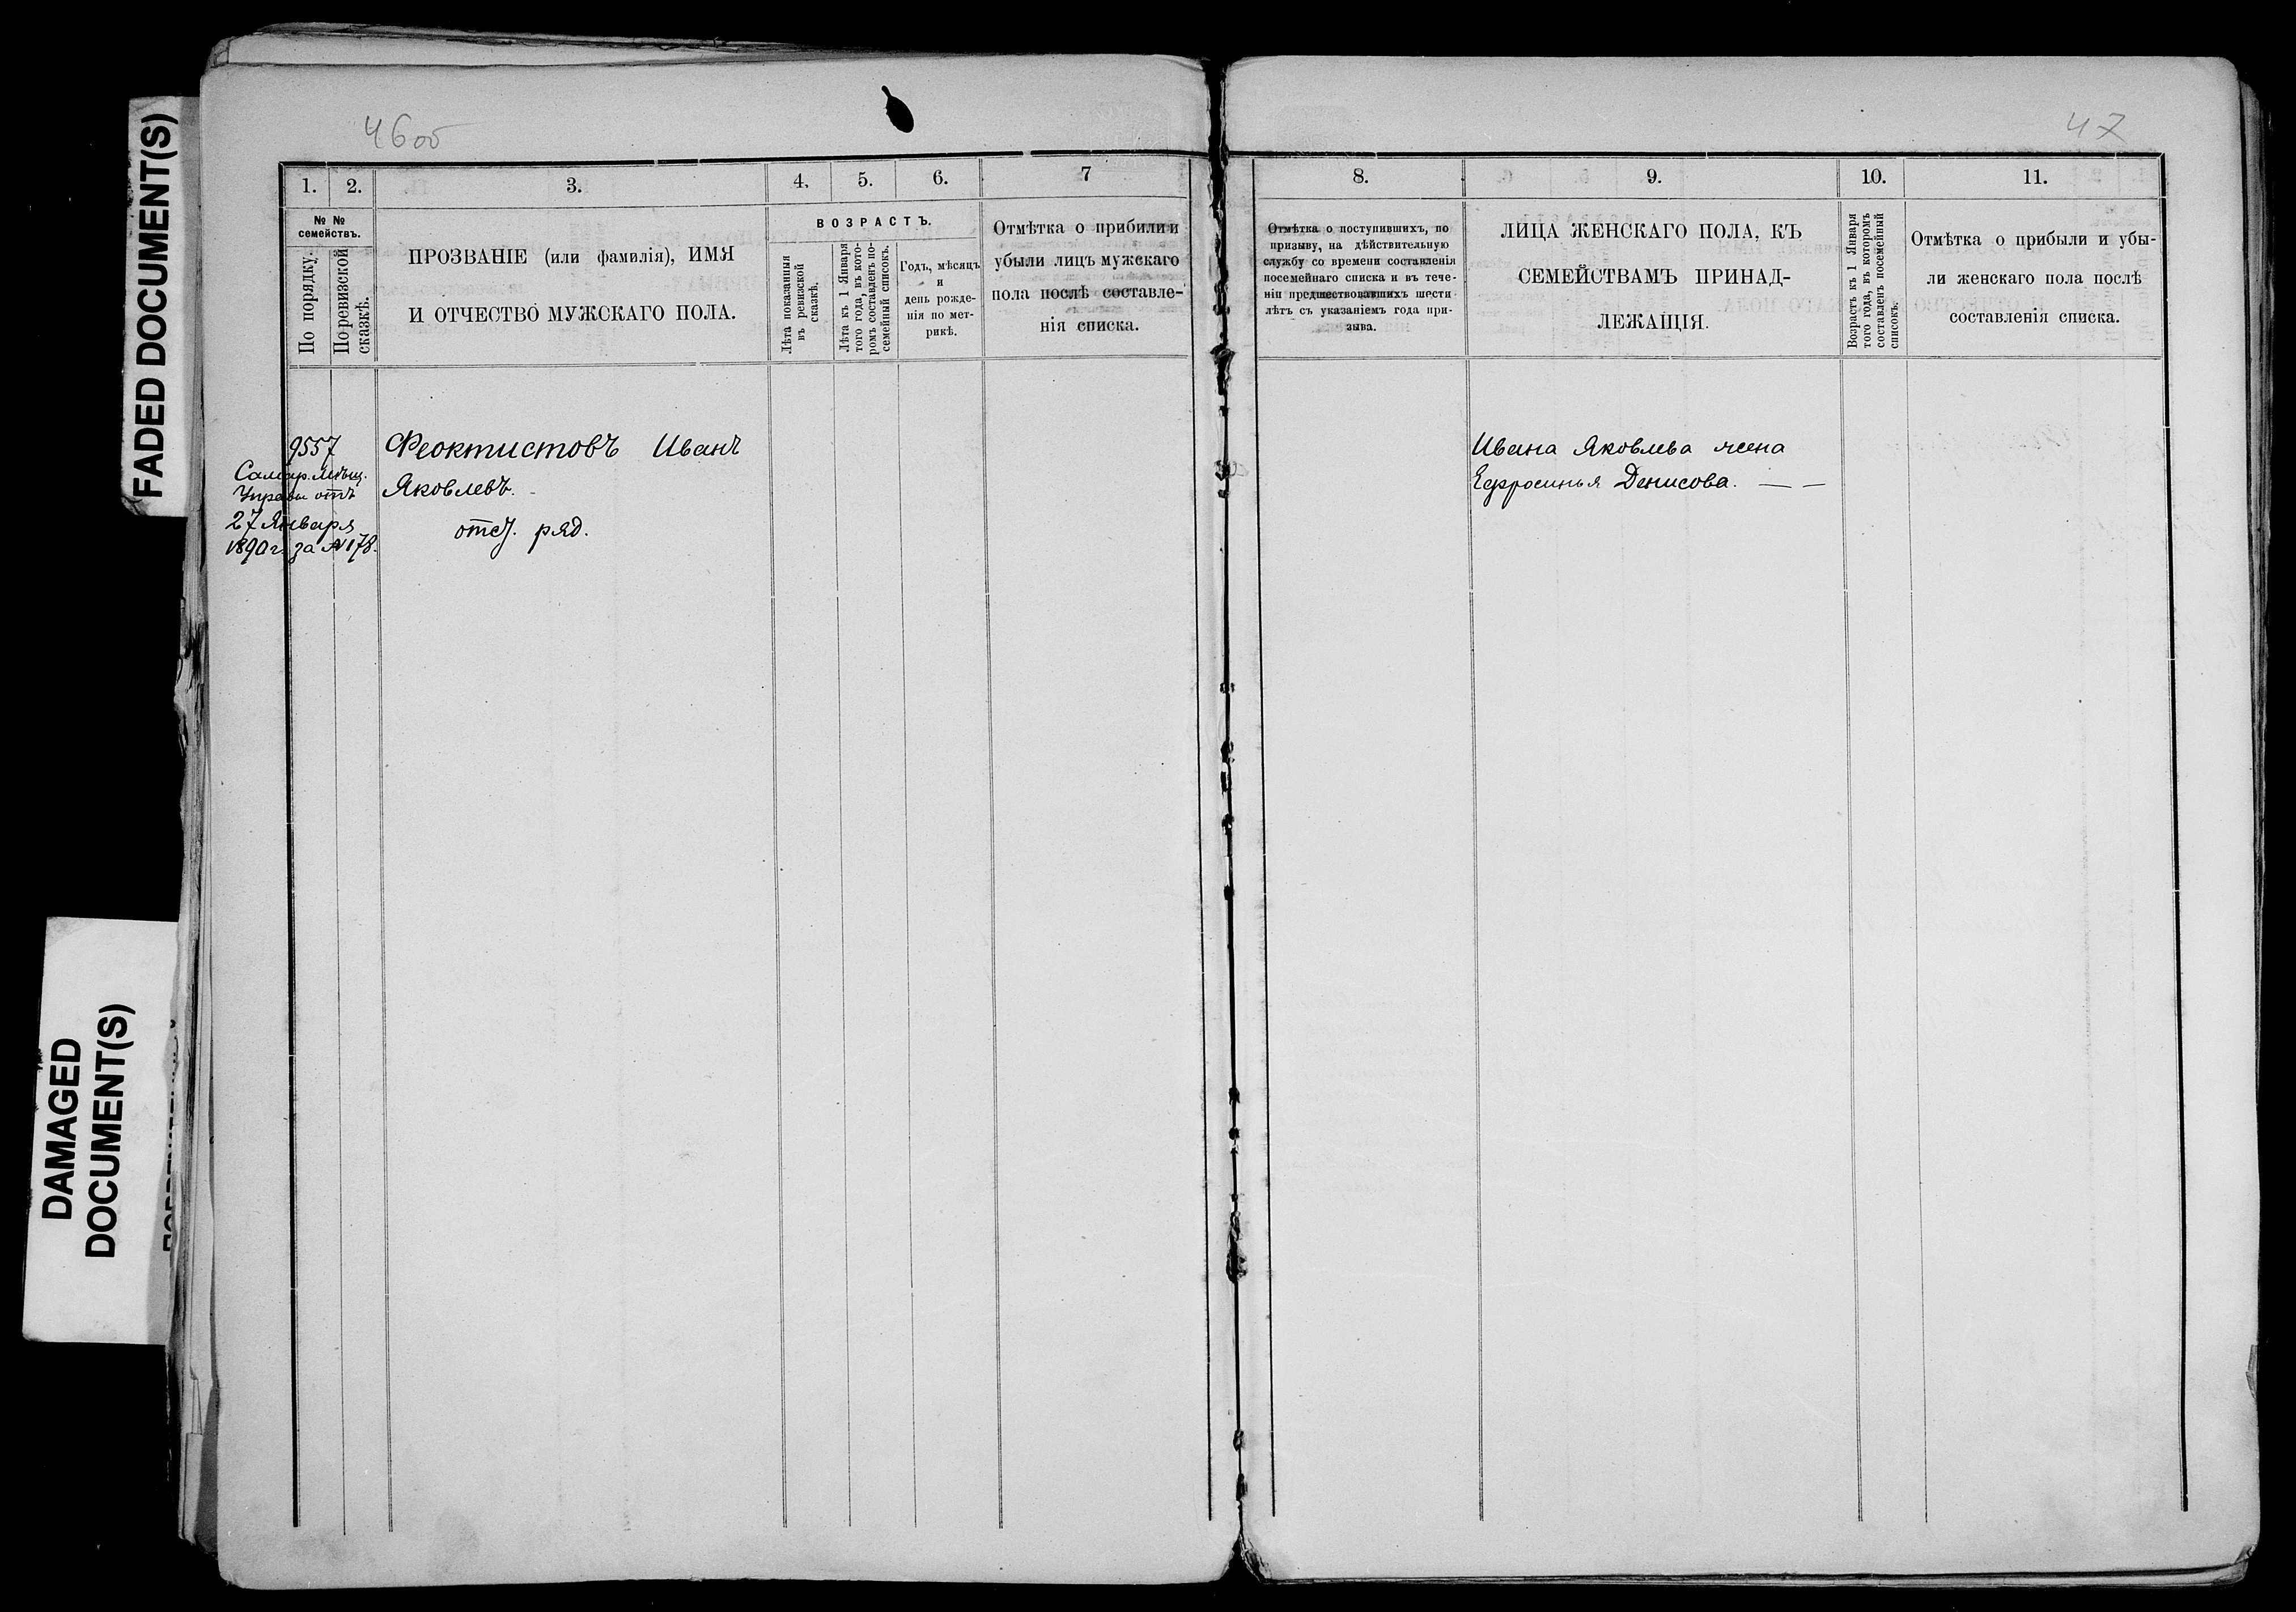 FADED DOCUMENT(S)
DAMAGED
DOCUMENT(S)
46об
1.
2.
3.
4.
5.
6.
7
№ №
семействъ.
По порядку.
По ревизской
сказкѣ.
ПРОЗВАНІЕ (или фамилія), ИМЯ
И ОТЧЕСТВО МУЖСКАГО ПОЛА.
ВОЗРАСТЪ.
Лѣта показанныя
въ ревизской
сказкѣ.
Лѣта къ 1 Января
того года, въ кото-
ромъ составленъ по-
семейный списокъ.
Годъ, мѣсяцъ
и
день рожде-
нія по мет-
рикѣ.
Отмѣтка о прибили и
убыли лицъ мужскаго
пола послѣ составле-
нія списка.
9557
Самар. Мѣщ.
Управы отъ
27 Января
1890 г. за № 178.
Феоктистовъ Иванъ
Яковлевъ. -
отст. ряд.
47
8.
9.
10.
11.
Отмѣтка о поступившихъ, по
призыву, на дѣйствительную
службу со времени составленія
посемейнаго списка и въ тече-
ніи предшествовавшихъ шести
лѣтъ съ указаніемъ года при-
зыва.
ЛИЦА ЖЕНСКАГО ПОЛА, КЪ
СЕМЕЙСТВАМЪ ПРИНАД-
ЛЕЖАЩІЯ.
Возрастъ къ 1 Января
того года, въ которомъ
составленъ посемейный
списокъ.
Отмѣтка о прибыли и убы-
ли женскаго пола послѣ
составленія списка.
Ивана Яковлева жена
Ефросинья Денисова. — —